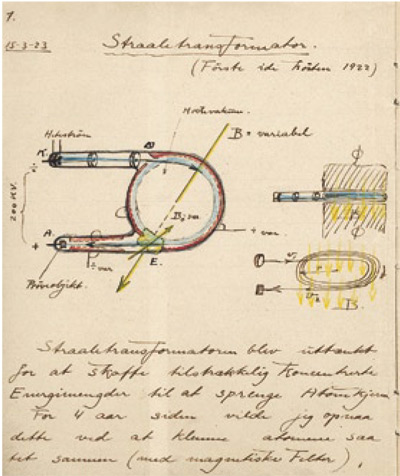 1.
15-3-23
Straaletransformator.
(Förste ide hösten 1922)
Hvileström
Höitvakuum.
B = variabel
K
200 KV.
÷
B; var
A.
+
E.
÷ var
+ var.
Pröveobjekt.
B
B.
Straaletransformatoren blev uttænkt
for at skaffe tilstrækkelig koncentrerte
Energimengder til at sprenge Atomkjærn
For 4 aar siden vilde jeg opnaa
dette ved at klemme atomene saa
tet sammen (med magnetiske Felter),